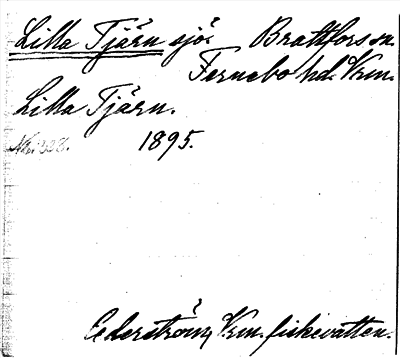 Lilla Tjärn sjö. Brattfors sn.
Fernebo hd. Vrm.
Lilla Tjärn.
1895.
Cederström, Vrm. fiskevatten.